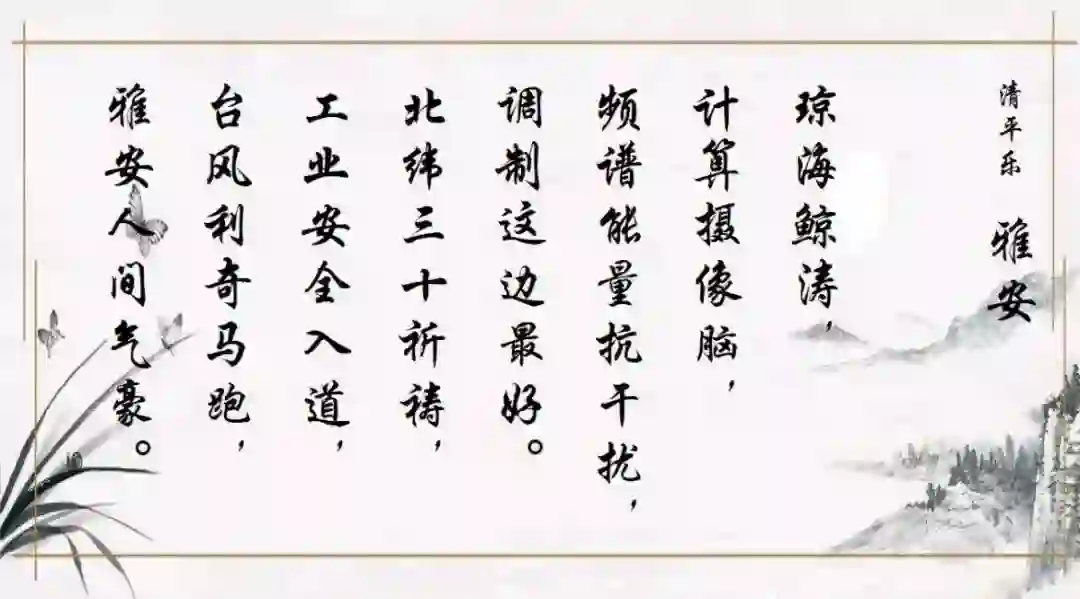 清平乐 雅安
琼海鲸涛，
计算摄像脑，
频谱能量抗干扰，
调制这边最好。
北纬三十祈祷，
工业安全入道，
台风利奇马跑，
雅安人间气豪。